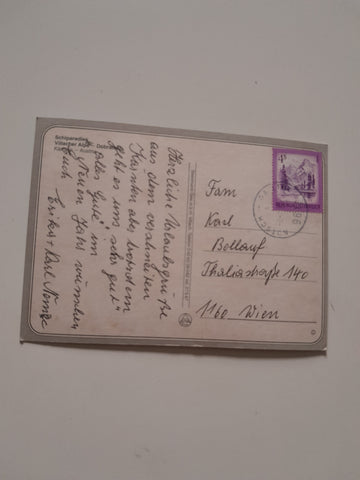 Schiparadies
Villacher Alpe Dobratsch
Austria
Herzliche Urlaubsgrüße
aus dem verschneiten
Kärnten aber trotzdem
geht es uns sehr gut
alles Gute im
Neuen Jahr wünschen
Euch Erika + Karl Nemec
4 S
Fam
Karl
Bellauf
Thaliastraße 140
1160 Wien